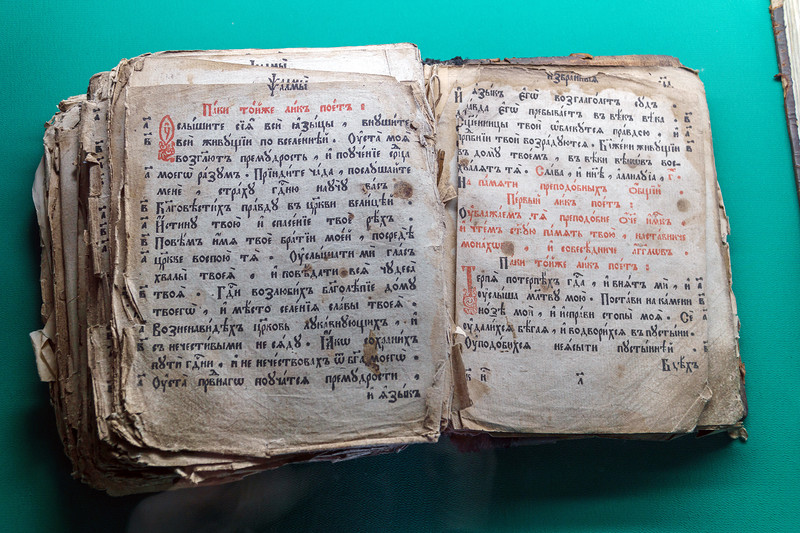 Ѱалмы̀
Па́ки то́йже ли́къ пое́тъ :
Оуслы́шите сїѧ̑ всѝ ꙗ҆зы́цы , внуши́те
всѝ живу́щїи по вселе́ннѣй . Оуста̀ моѧ̑
возгл҃ютъ прему́дрость , и҆ поуче́нїе се́рдца
моегѡ̀ ра́зумъ . Прїиди́те ча̑да , послу́шайте
менѐ , стра́ху гд҇ню научу̀ ва́съ .
Бл҃говѣсти́хъ пра́вду въ цр҃кви вели́цѣй
И҆́стину твою̀ и҆ спасе́нїе твоѐ рѣ́хъ .
Повѣ́мъ и҆́мѧ твоѐ бра́тїи мое́й , посредѣ̀
цр҃кве воспою́ тѧ . Оуслы́шати мѝ гла́съ
хвалы̀ твоеѧ̀ , и҆ повѣ́дати всѧ̑ чудеса̀
твоѧ̑ . Гд҇и возлюби́хъ бл҃голѣ́пїе до́му
твоегѡ̀ , и҆ мѣ́сто селе́нїѧ сла́вы твоеѧ̀ .
Возненави́дѣхъ цр҃ковь лука́внующихъ , и҆
съ нечести́выми не сѧ́ду . Ꙗ҆́кѡ сохрани́хъ
пути̑ гд҇ни , и҆ не нече́ствовахъ ѿ бг҃а моегѡ̀
Оуста̀ пра́внагѡ поуча́тсѧ прему́дрости .
и҆ ꙗ҆зы́къ
и҆збра́нныѧ
И҆ ꙗ҆зы́къ є҆гѡ̀ возглаго́летъ су́дъ
Пра́вда є҆гѡ̀ пребыва́етъ въ вѣ́къ вѣ́ка
Сщ҃е́нницы твоѝ ѡ҆блеку́тсѧ пра́вдою , и҆
прпⷣбнїи твоѝ возра́дуютсѧ . Бл҃же́ни живу́щїи
въ дому̀ твое́мъ , въ вѣ́ки вѣкѡ́въ вос
хва́лѧтъ тѧ̀ . Сла́ва , и҆ ны́нѣ , а҆ллилу́їа , г҃ .
На па́мѧти преподо́бныхъ о҆́бщїй .
Пе́рвый ли́къ пое́тъ :
Оублажа́емъ тѧ̀ преподо́бне ѻ҆́ч҃е и҆м҃къ
и҆ чте́мъ ст҃у́ю па́мѧть твою̀ , наста́вниче
мона́хѡвъ , и҆ собесѣ́дниче а҆́гг҃лѡвъ .
Па́ки то́йже ли́къ пое́тъ :
Терпѧ̀ потерпѣ́хъ гд҇а , и҆ внѧ́тъ мѝ , и҆
оуслы́ша мл҃тву мою̀ . Поста́ви на ка́мени
но́зѣ моѝ , и҆ и҆спра́ви стопы̀ моѧ̀ . Се
оудали́хсѧ бѣ́гаѧ , и҆ водвори́хсѧ въ пусты́ни .
Оуподо́бихсѧ неѧ́сыти пусты́ннѣй .
Бдѣ́хъ